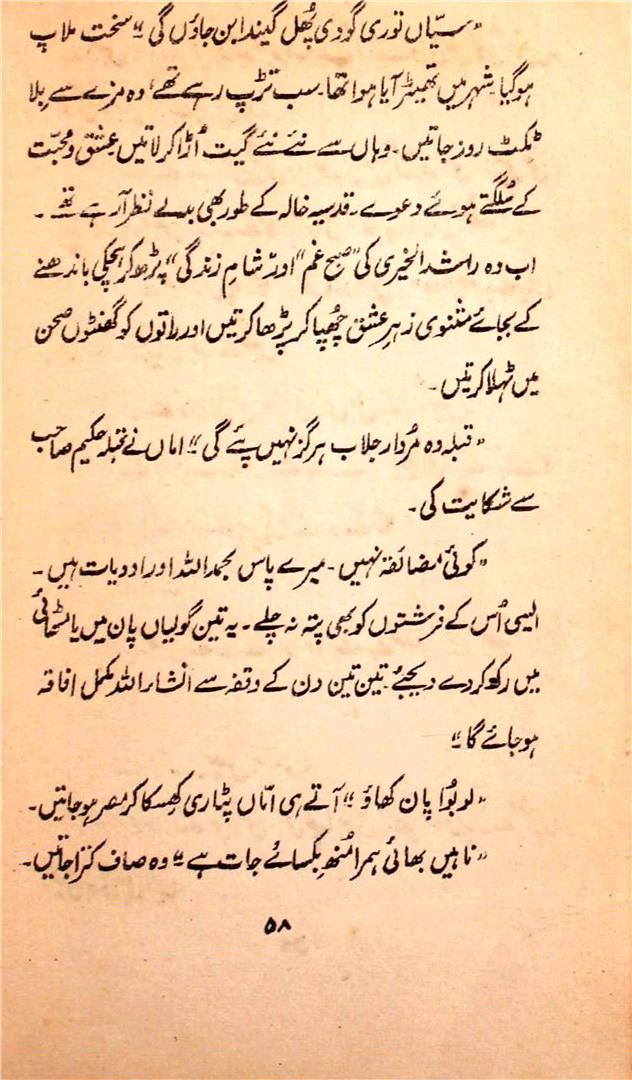 "سیّاں توری گودی پُھل گیندا بن جاؤں گی" سخت ملاپ
ہو گیا۔ شہر میں تھیٹر آیا ہوا تھا۔ سب تڑپ رہے تھے، وہ مزے سے بلا
ٹکٹ روز جاتیں۔ وہاں سے نئے نئے گیت اُڑا کر لاتیں عشق و محبّت
کے سُلگتے ہوئے دعوے۔ قدسیہ خالہ کے طور بھی بدلے نظر آ رہے تھے۔
اب وہ راشد الخیری کی "صبحِ غم" اور "شامِ زندگی" پڑھ کر ہچکی باندھنے
کے بجائے مثنوی زہرِ عشق چُھپا کر پڑھا کرتیں اور راتوں کو گھنٹوں صحن
میں ٹہلا کرتیں۔
"قبلہ وہ مُردار جلاب ہرگز نہیں پئے گی" اماں نے قبلہ حکیم صاحب
سے شکایت کی۔
"کوئی مضائقہ نہیں۔ میرے پاس بحمداللہ اور ادویات ہیں۔
ایسی اُس کے فرشتوں کو بھی پتہ نہ چلے۔ یہ تین گولیاں پان میں یا مٹھائی
میں رکھ کر دے دیجئے۔ تین تین دن کے وقفہ سے انشاء اللہ مکمل افاقہ
ہو جائے گا"
"لو بُوا پان کھاؤ" آتے ہی امّاں پٹاری کِھسکا کر مصر ہو جاتیں۔
"ناہیں بھائی ہمرا مُنھ بکسائے جات ہے" وہ صاف کترا جاتیں۔
۵۸